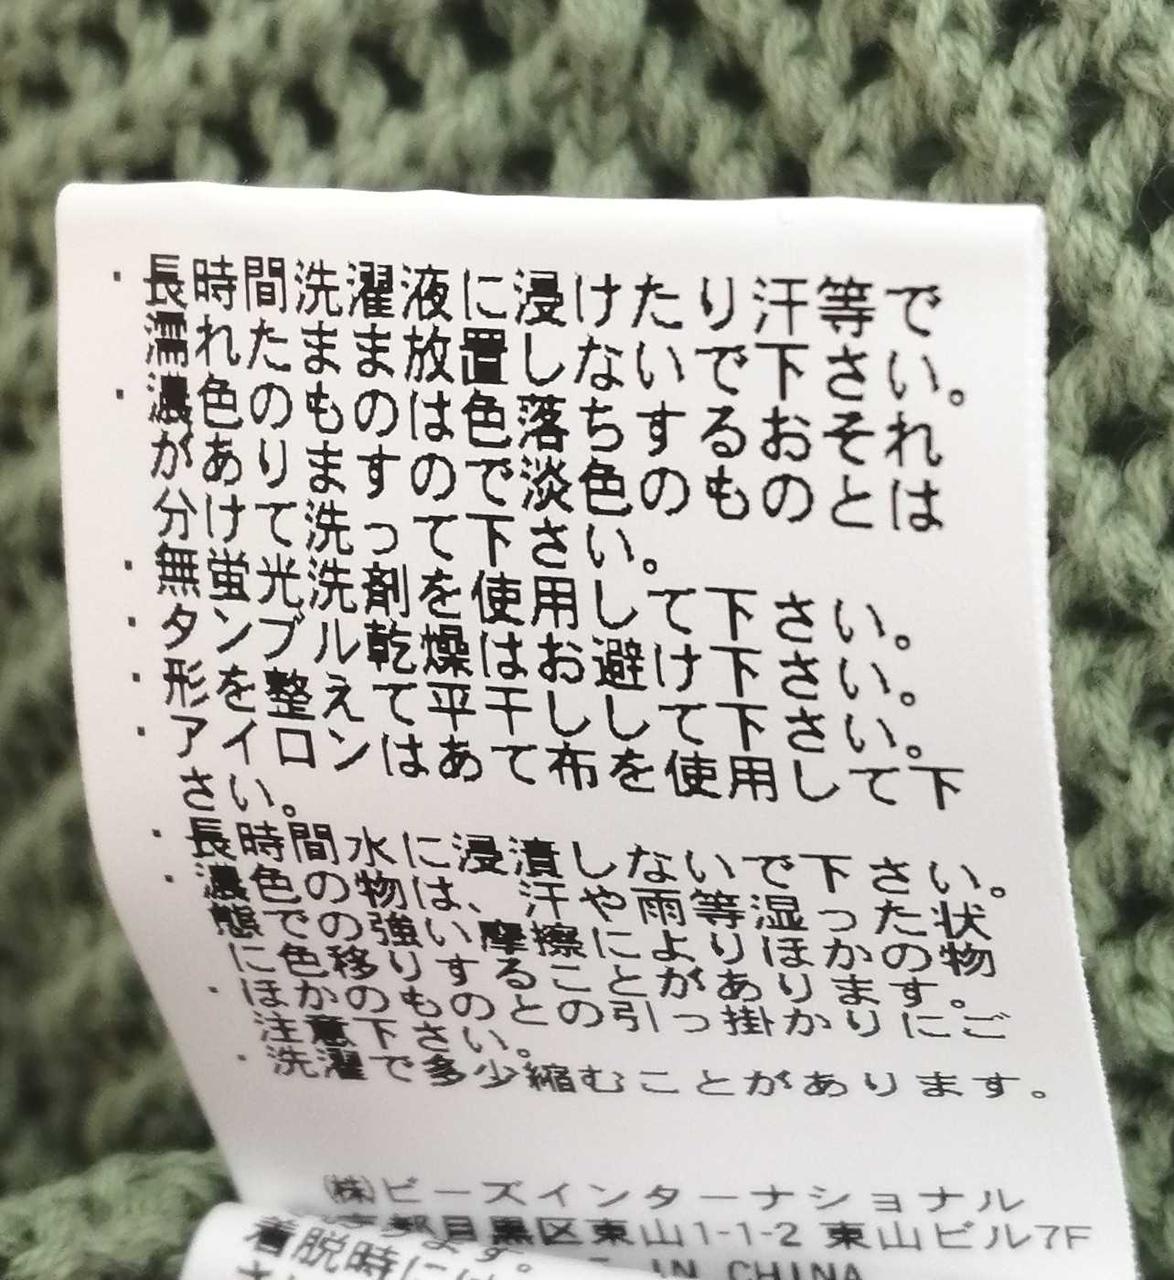 ・長時間洗濯液に浸けたり汗等で
濡れたまま放置しないで下さい。
・濃色のものは色落ちするおそれ
がありますので淡色のものとは
分けて洗って下さい。
・無蛍光洗剤を使用して下さい。
・タンブル乾燥はお避け下さい。
・形を整えて平干しして下さい。
・アイロンはあて布を使用して下
さい。
・長時間水に浸漬しないで下さい。
・濃色の物は、汗や雨等湿った状
態での強い摩擦によりほかの物
に色移りすることがあります。
・ほかのものとの引っ掛かりにご
注意下さい。
・洗濯で多少縮むことがあります。
㈱ビーズインターナショナル
都目黒区東山1-1-2 東山ビル7F
IN CHINA
ます。
着脱時には